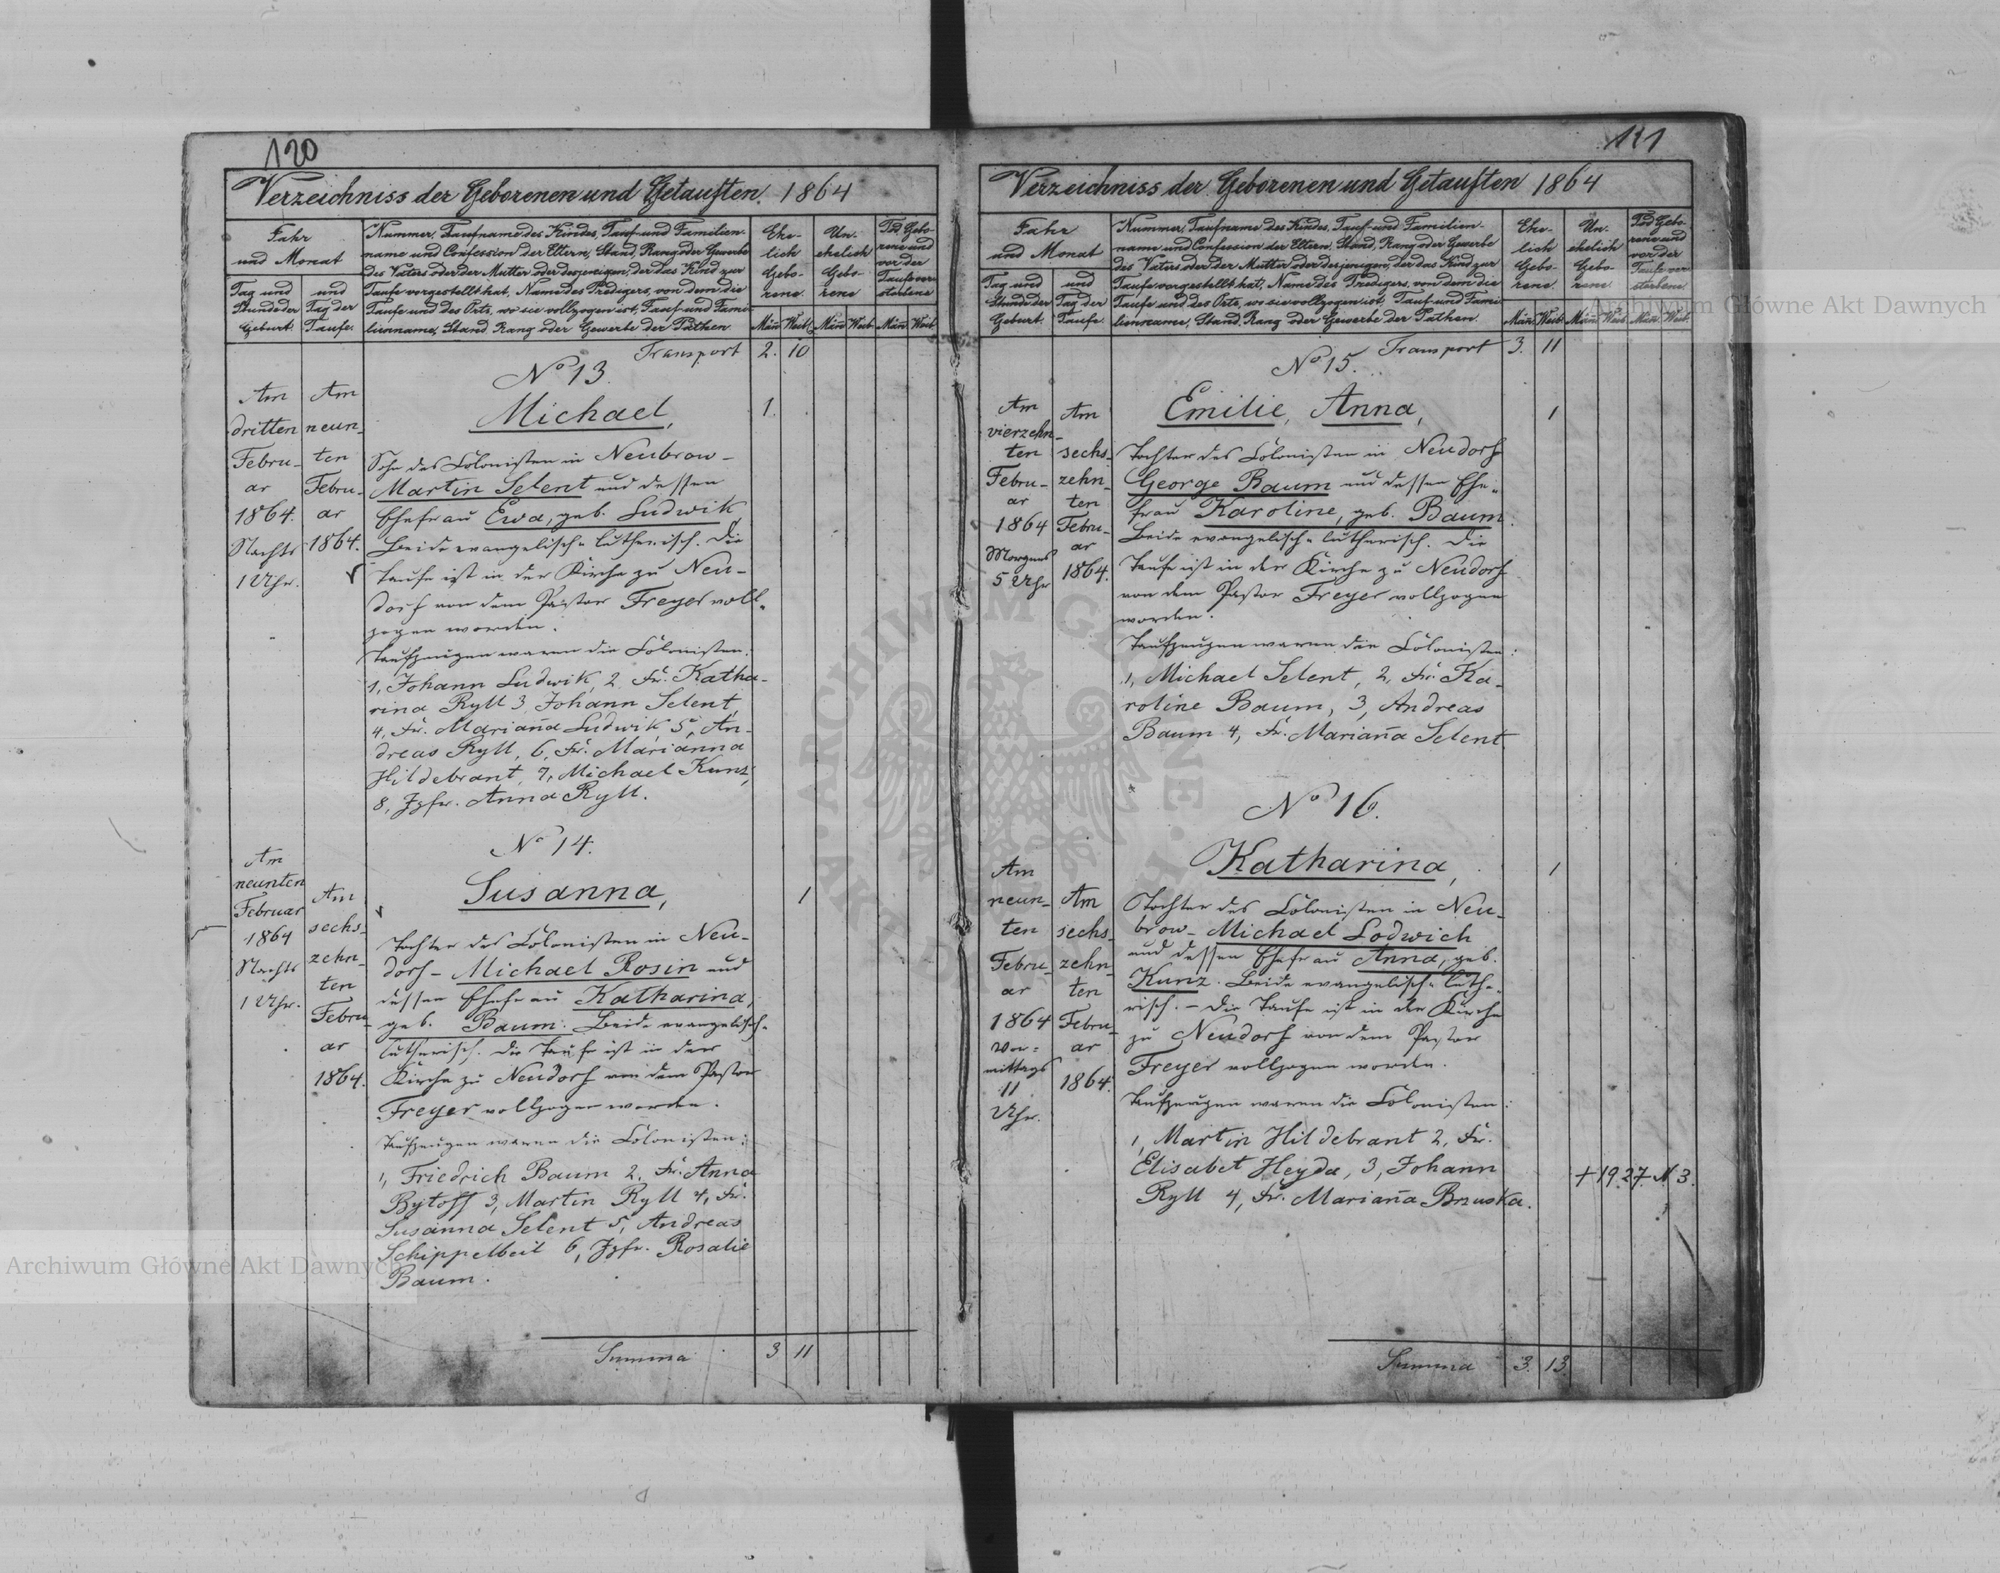 120
Verzeichniss der Geborenen und Getauften. 1864
Jahr
und Monat
Tag und
Stunde der
Geburt.
und
Tag der
Taufe.
Nummer, Taufname des Kindes, Tauf- und Familien-
name und Confession der Eltern, Stand, Rang oder Gewerbe
des Vaters oder der Mutter oder derjenigen, der das Kind zur
Taufe vorgestellt hat, Name des Predigers, von dem die
Taufe und des Orts, wo sie vollzogen ist, Tauf- und Fami-
lienname, Stand, Rang oder Gewerbe der Pathen.
Ehe-
lich
Gebo-
rene
Un-
ehelich
Gebo-
rene
Tod Gebo-
rene und
vor der
Taufe ver-
storbene
Män. Weib. Män. Weib. Män. Weib.
Transport 2. 10
No 13.
Am
dritten
Febru-
ar
1864.
Nachts
1 Uhr.
Am
neun-
ten
Febru-
ar
1864.
Michael, 1.
Sohn des Colonisten in Neubrow-
Martin Selent und dessen
Ehefrau Ewa, geb. Ludwik
Beide evangelisch-lutherisch. Die
Taufe ist in der Kirche zu Neu-
dorf von dem Pastor Freyer voll-
zogen worden.
Taufzeugen waren die Colonisten:
1, Johann Ludwik, 2, Fr. Katha-
rina Ryll 3, Johann Selent,
4, Fr. Mariaña Ludwik, 5, An-
dreas Ryll, 6, Fr. Marianna
Hildebrant, 7, Michael Kunz,
8, Jgfr. Anna Ryll.
No 14.
Am
neunten
Februar
1864
Nachts
1 Uhr.
Am
sechs-
zehn-
ten
Febru-
ar
1864.
Susanna, 1
Tochter des Colonisten in Neu-
dorf - Michael Rosin und
dessen Ehefrau Katharina,
geb. Baum. Beide evangelisch-
lutherisch. Die Taufe ist in der
Kirche zu Neudorf von dem Pastor
Freyer vollzogen worden.
Taufzeugen waren die Colonisten:
1, Friedrich Baum 2, Fr. Anna
Bytoff 3, Martin Ryll 4, Fr.
Susanna Selent 5, Andreas
Schippelbeil 6, Jgfr. Rosalie
Baum.
Summa 3 11
121
Verzeichniss der Geborenen und Getauften 1864
Jahr
und Monat
Tag und
Stunde der
Geburt.
und
Tag der
Taufe.
Nummer, Taufname des Kindes, Tauf- und Familien-
name und Confession der Eltern, Stand, Rang oder Gewerbe
des Vaters oder der Mutter oder derjenigen, der das Kind zur
Taufe vorgestellt hat, Name des Predigers, von dem die
Taufe und des Orts, wo sie vollzogen ist, Tauf- und Fami-
lienname, Stand, Rang oder Gewerbe der Pathen.
Ehe-
lich
Gebo-
rene
Un-
ehelich
Gebo-
rene
Tod Gebo-
rene und
vor der
Taufe ver-
storbene
Män. Weib. Män. Weib. Män. Weib.
Transport 3. 11
No 15.
Am
vierzehn-
ten
Febru-
ar
1864
Morgens
5 Uhr
Am
sechs-
zehn-
ten
Febru-
ar
1864.
Emilie, Anna, 1
Tochter des Colonisten in Neudorf
George Baum und dessen Ehe-
frau Karoline, geb. Baum.
Beide evangelisch-lutherisch. Die
Taufe ist in der Kirche zu Neudorf
von dem Pastor Freyer vollzogen
worden.
Taufzeugen waren die Colonisten:
1, Michael Selent, 2, Fr. Ka-
roline Baum, 3, Andreas
Baum 4, Fr. Mariaña Selent
No 16.
Am
neun-
ten
Febru-
ar
1864
Vor-
mittags
11
Uhr.
Am
sechs-
zehn-
ten
Febru-
ar
1864.
Katharina, 1
Tochter des Colonisten in Neu-
brow- Michael Lodwich
und dessen Ehefrau Anna, geb.
Kunz. Beide evangelisch-luthe-
risch. - Die Taufe ist in der Kirche
zu Neudorf von dem Pastor
Freyer vollzogen worden.
Taufzeugen waren die Colonisten:
1, Martin Hildebrant 2, Fr.
Elisabet Heyda, 3, Johann
Ryll 4, Fr. Mariaña Bruska.
+ 1927 N 3.
Summa 3. 13
Archiwum Główne Akt Dawnych
Archiwum Główne Akt Dawnych